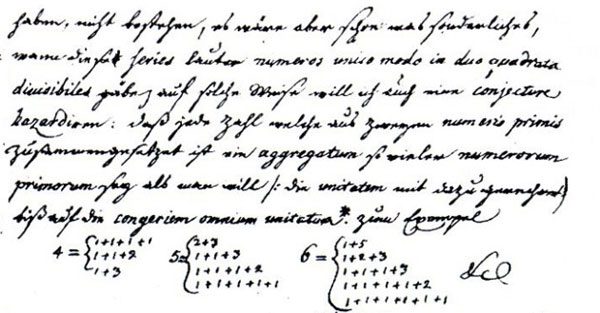 haben, nicht bestehen, es wäre aber schon was sonderliches,
wann diese series lauter numeros unico modo in duo quadrata
divisibiles gäbe, auf solche Weise will ich auch eine conjecture
hazardiren: daß jede Zahl welche aus zweyen numeris primis
zusammengesetzet ist ein aggregatum so vieler numerorum
primorum sey als man will /: die unitatem mit dazu gerechnet)
biß auf die congeriem omnium unitatum*. zum Exempel
4 = { 1+1+1+1 5 = { 2+3 6 = { 1+5
1+1+2 1+1+3 1+2+3
1+3 1+1+1+2 1+1+1+3
1+1+1+1+1 1+1+1+1+2
1+1+1+1+1+1 &c